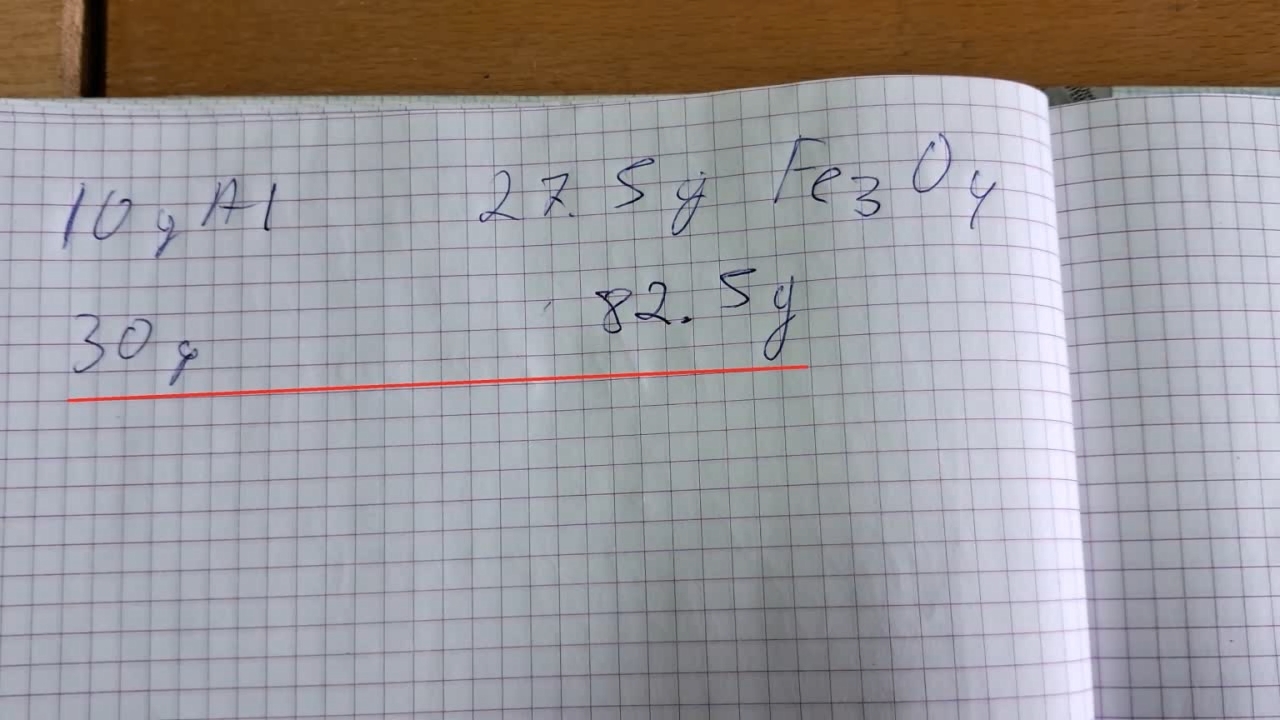 10g Al 27.5g Fe3O4
30g 82.5g